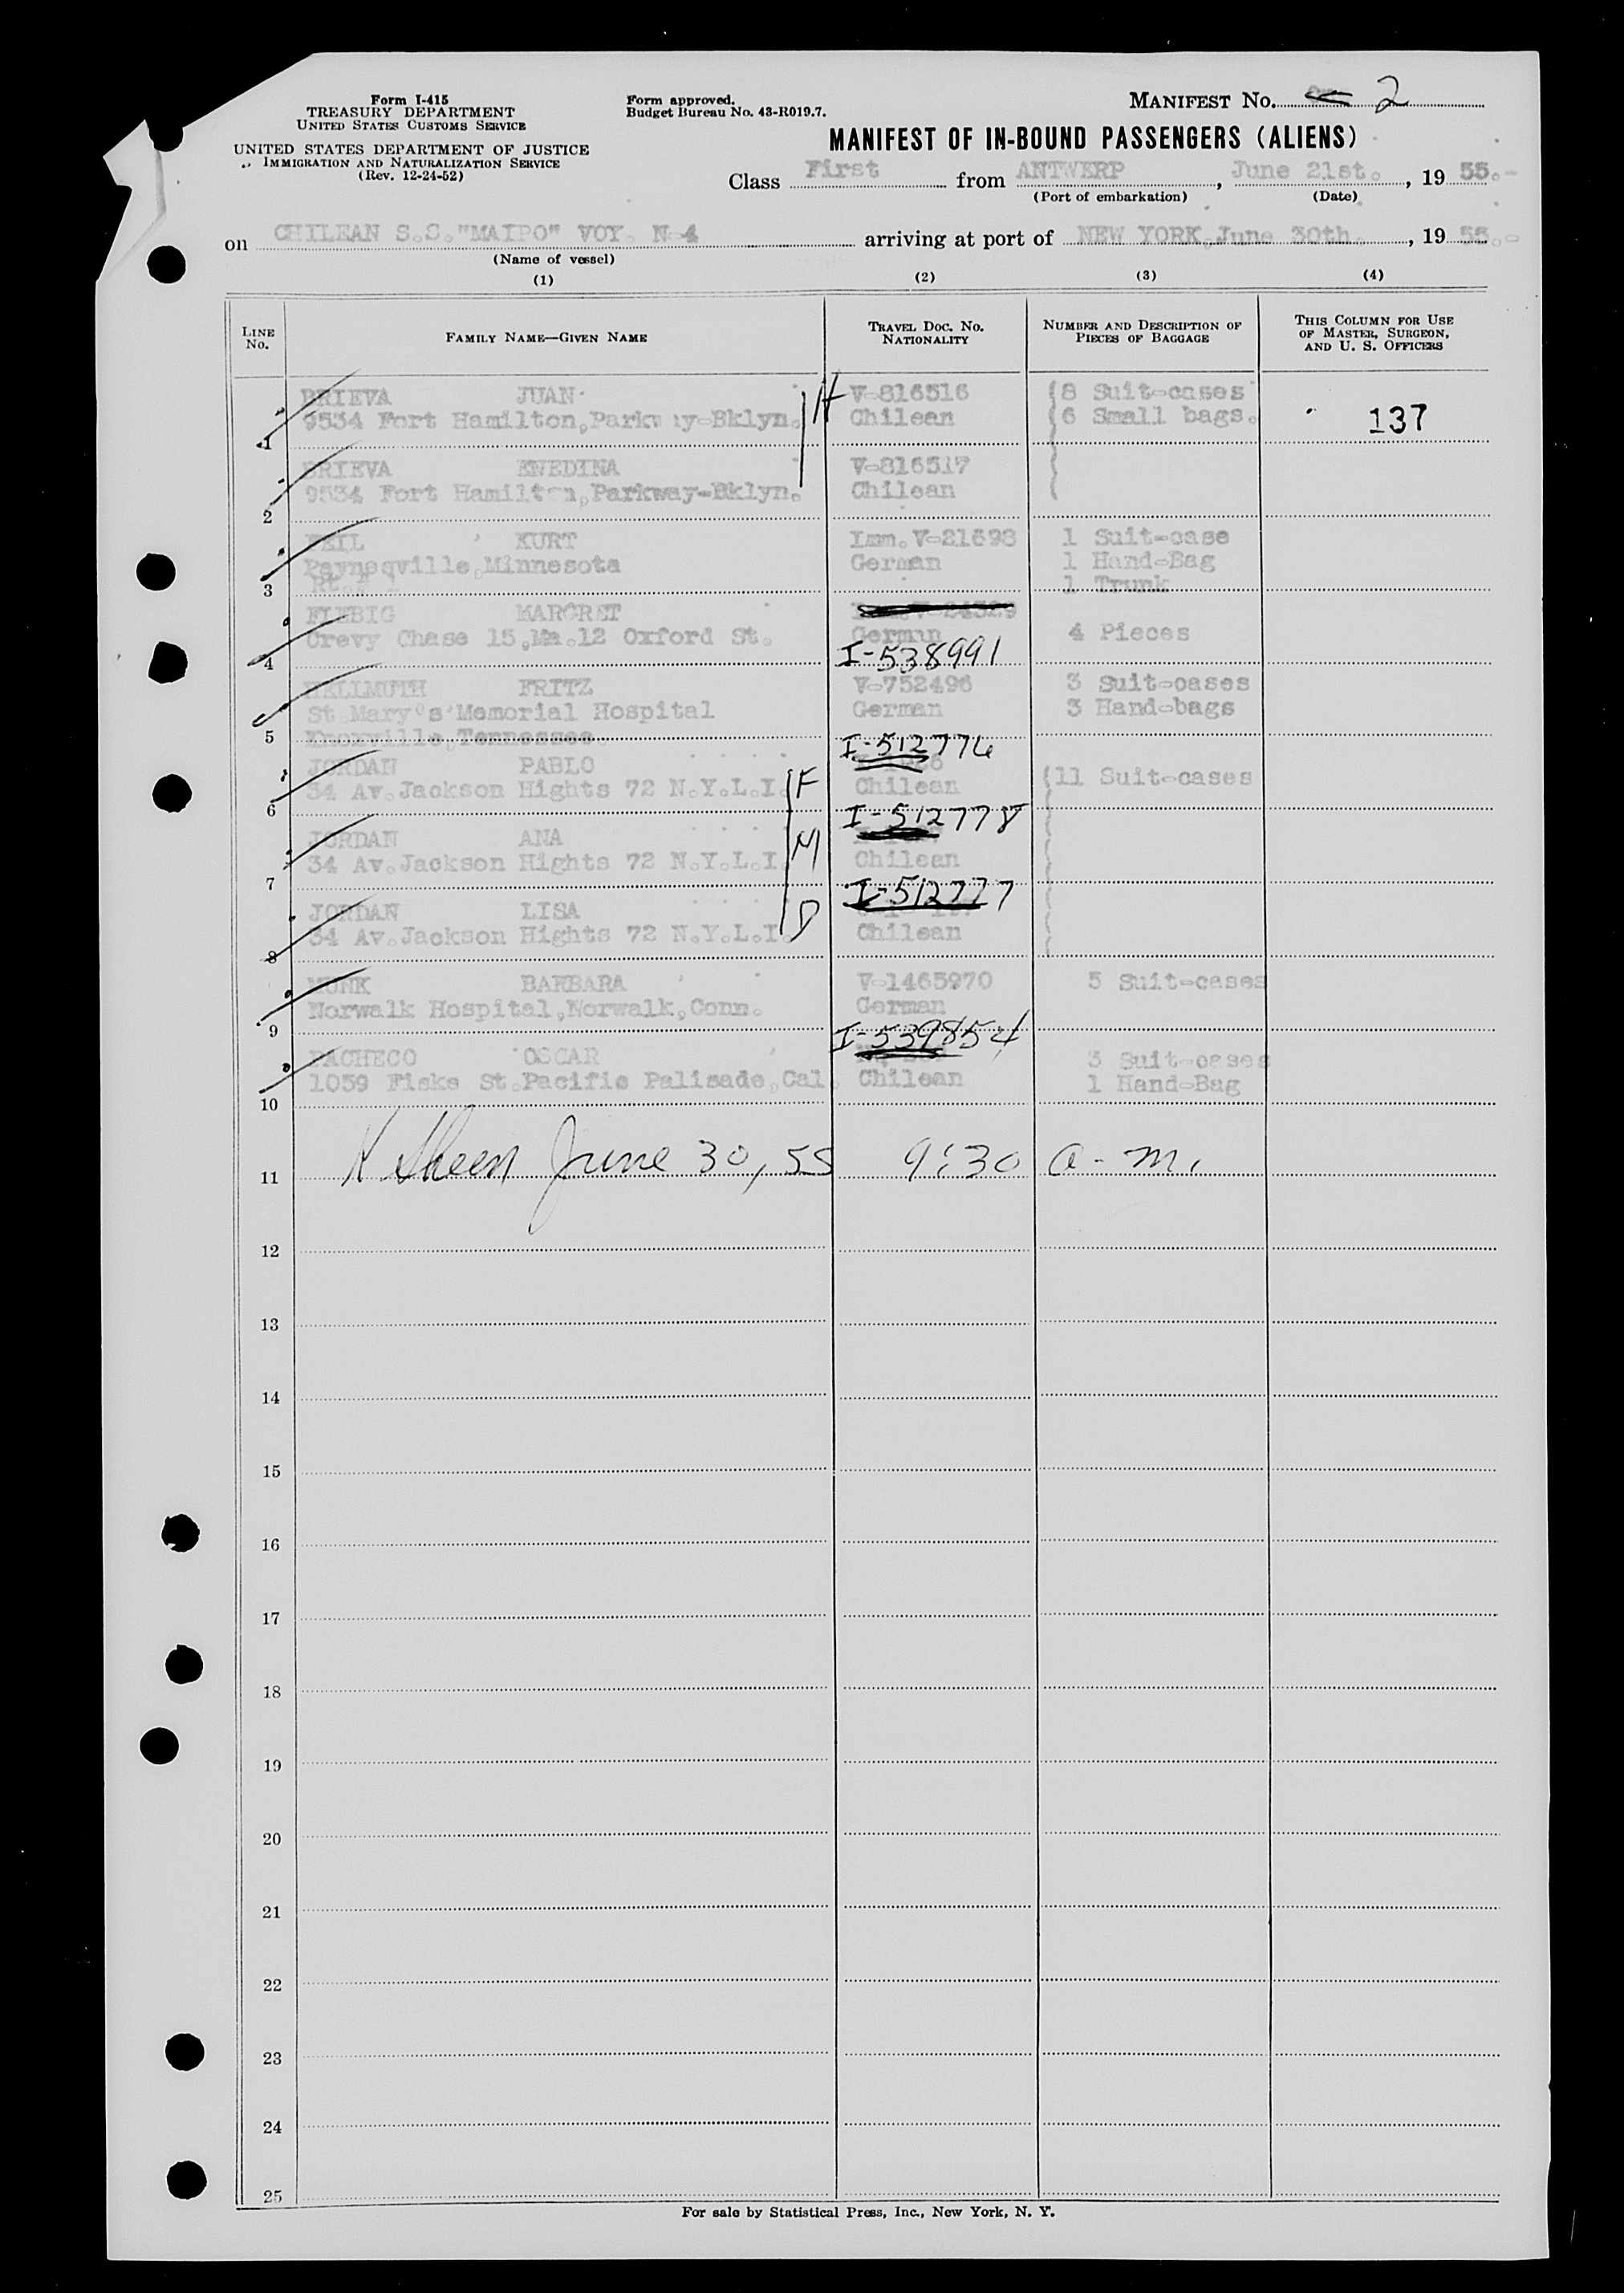 Form I-415
TREASURY DEPARTMENT
UNITED STATES CUSTOMS SERVICE
UNITED STATES DEPARTMENT OF JUSTICE
IMMIGRATION AND NATURALIZATION SERVICE
(Rev. 12-24-52)
Form approved.
Budget Bureau No. 43-R019.7.
MANIFEST NO. 2
MANIFEST OF IN-BOUND PASSENGERS (ALIENS)
Class First from ANTWERP, June 21st., 19 55.-
(Port of embarkation) (Date)
on CHILEAN S.S."MAIPO" VOY. N-4 arriving at port of NEW YORK, June 30th., 19 55.-
(Name of vessel)
(1) (2) (3) (4)
LINE NO. FAMILY NAME—GIVEN NAME TRAVEL DOC. NO. NATIONALITY NUMBER AND DESCRIPTION OF PIECES OF BAGGAGE THIS COLUMN FOR USE OF MASTER, SURGEON, AND U. S. OFFICERS
BRIEVA JUAN H V-816516 8 Suit-cases
1 9534 Fort Hamilton,Parkway-Bklyn. Chilean 6 Small bags. 137
BRIEVA ENEDINA V-816517
2 9534 Fort Hamilton,Parkway-Bklyn. Chilean
FEIL KURT Imm.V-21698 1 Suit-case
Paynesville,Minnesota German 1 Hand-Bag
3 Rt. 1 Trunk
FIEBIG MARGRET
4 Crevy Chase 15,Ma.12 Oxford St. German 4 Pieces
I-538991
HELLMUTH FRITZ V-752496 3 Suit-cases
St Mary's Memorial Hospital German 3 Hand-bags
5 Knoxville,Tennessee
I-512776
JORDAN PABLO F
6 34 Av.Jackson Hights 72 N.Y.L.I. Chilean 11 Suit-cases
I-512778
JORDAN ANA M
7 34 Av.Jackson Hights 72 N.Y.L.I. Chilean
I-512777
JORDAN LISA D
8 34 Av.Jackson Hights 72 N.Y.L.I. Chilean
MUNK BARBARA V-1465970 5 Suit-cases
9 Norwalk Hospital,Norwalk,Conn. German
I-539854
PACHECO OSCAR 3 Suit-cases
10 1059 Fiske St.Pacific Palisade,Cal. Chilean 1 Hand-Bag
11 June 30, 55 9:30 a.m.
12
13
14
15
16
17
18
19
20
21
22
23
24
25
For sale by Statistical Press, Inc., New York, N. Y.